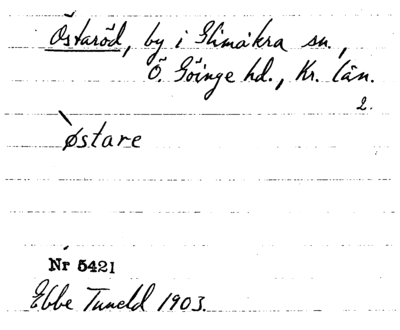 Östaröd, by i Glimåkra sn.,
Ö. Göinge hd., Kr. län.
2.
`østare
Nr 5421
Ebbe Tuneld 1903.